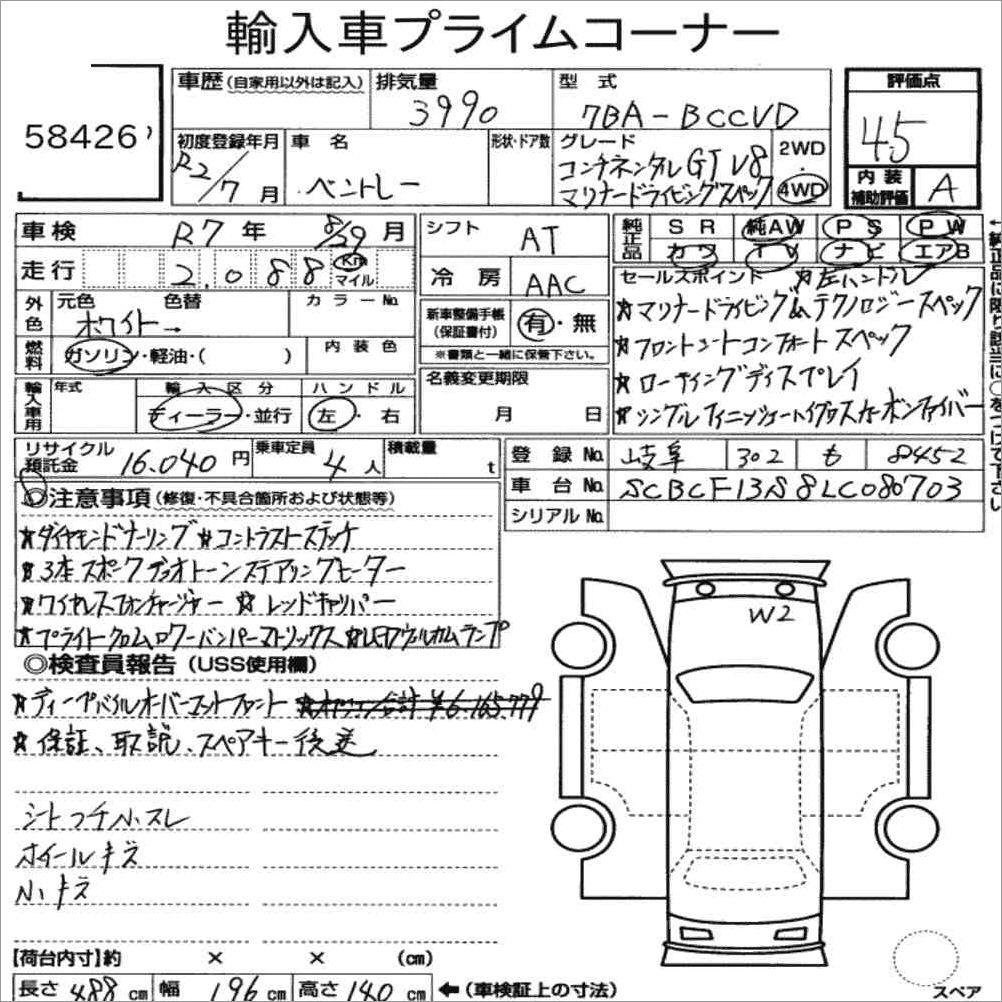 輸入車プライムコーナー
58426
車歴(自家用以外は記入) 排気量 3990 型式 7BA-BCCVD 評価点 4.5
初度登録年月 R2/7月 車名 ベントレー 形状・ドア数 グレード コンチネンタルGT V8 マリナードライビングスペック 2WD・4WD
内装補助評価 A
車検 R7年 8/29月
走行 2,088 Km マイル
外色 元色 ホワイト→ 色替 カラーNo.
燃料 ガソリン・軽油・( ) 内装色
輸入車用 年式 輸入区分 ディーラー・並行 ハンドル 左・右
シフト AT
冷房 AAC
新車整備手帳(保証書付) 有・無
※書類と一緒に保管下さい。
名義変更期限 月 日
純正品 SR 純AW PS PW
カワ TV ナビ エアB
セールスポイント ☆左ハンドル
★マリナードライビング&テクノロジースペック
★フロントシートコンフォートスペック
★ローテイングディスプレイ
★シングルフィニッシュハイグロスカーボンファイバー
←純正品に限り該当に○をつけて下さい
リサイクル預託金 16.040円 乗車定員 4人 積載量 t
登録No. 岐阜 302 も 8452
車台No. SCBCF13S8LC080703
シリアルNo.
◎注意事項(修復・不具合箇所および状態等)
★ダイヤモンドナーリング ☆コントラストステッチ
★3本スポークデュオトーンステアリングヒーター
★ワイヤレスフォンチャージャー ☆レッドキャリパー
★ブライトクロムロワーバンパーマトリックス ☆LEDウェルカムランプ
◎検査員報告(USS使用欄)
★ディープパイルオーバーマットフロント ★オプション合計¥6.165.779
★保証、取説、スペアキー後送
シトコチ小スレ
ホイールキズ
小キズ
W2
【荷台内寸】約 × × (cm)
長さ 488 cm 幅 196 cm 高さ 140 cm ←(車検証上の寸法)
スペア